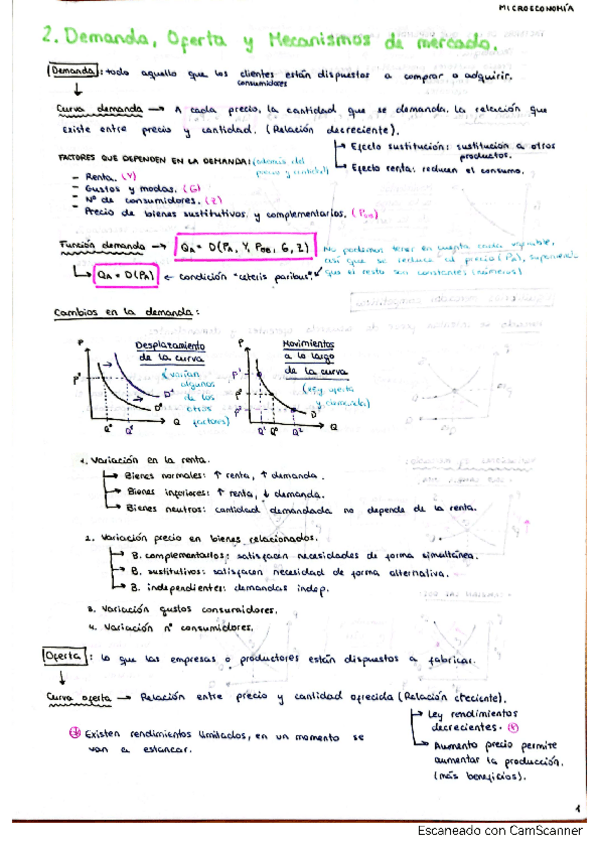 MICROECONOMÍA
2. Demanda, Oferta y Mecanismos de mercado.
Demanda: todo aquello que los clientes están dispuestos a comprar o adquirir.
consumidores
Curva demanda → A cada precio, la cantidad que se demanda. La relación que
existe entre precio y cantidad. (Relación decreciente).
Efecto sustitución: sustitución a otros
productos.
Efecto renta: reducen el consumo.
FACTORES QUE DEPENDEN EN LA DEMANDA: (además del
precio y cantidad)
- Renta. (Y)
- Gustos y modas. (G)
- Nº de consumidores. (Z)
- Precio de bienes sustitutivos y complementarios. (POB)
Función demanda → QA = D(PA, Y, POB, G, Z)
No podemos tener en cuenta cada variable,
así que se reduce al precio (PA), suponiendo
que el resto son constantes (números)
QA = D(PA) ← condición "ceteris paribus"
Cambios en la demanda:
P
Desplazamiento
de la curva
(varían
algunos
de los
otros
factores)
P⁰
D¹
D⁰
Q⁰
Q¹
Q
P
Movimientos
a lo largo
de la curva
(ley oferta
y demanda)
P¹
P⁰
P²
D⁰
Q¹ Q⁰ Q²
Q
1. Variación en la renta.
Bienes normales: ↑ renta, ↑ demanda.
Bienes inferiores: ↑ renta, ↓ demanda.
Bienes neutros: cantidad demandada no depende de la renta.
2. Variación precio en bienes relacionados.
B. complementarios: satisfacen necesidades de forma simultánea.
B. sustitutivos: satisfacen necesidad de forma alternativa.
B. independientes: demandas indep.
3. Variación gustos consumidores.
4. Variación nº consumidores.
Oferta: lo que las empresas o productores están dispuestos a fabricar.
Curva oferta → Relación entre precio y cantidad ofrecida (Relación creciente).
Ley rendimientos
decrecientes. (*)
Aumento precio permite
aumentar la producción.
(más beneficios).
(*) Existen rendimientos limitados, en un momento se
van a estancar.
1
Escaneado con CamScanner